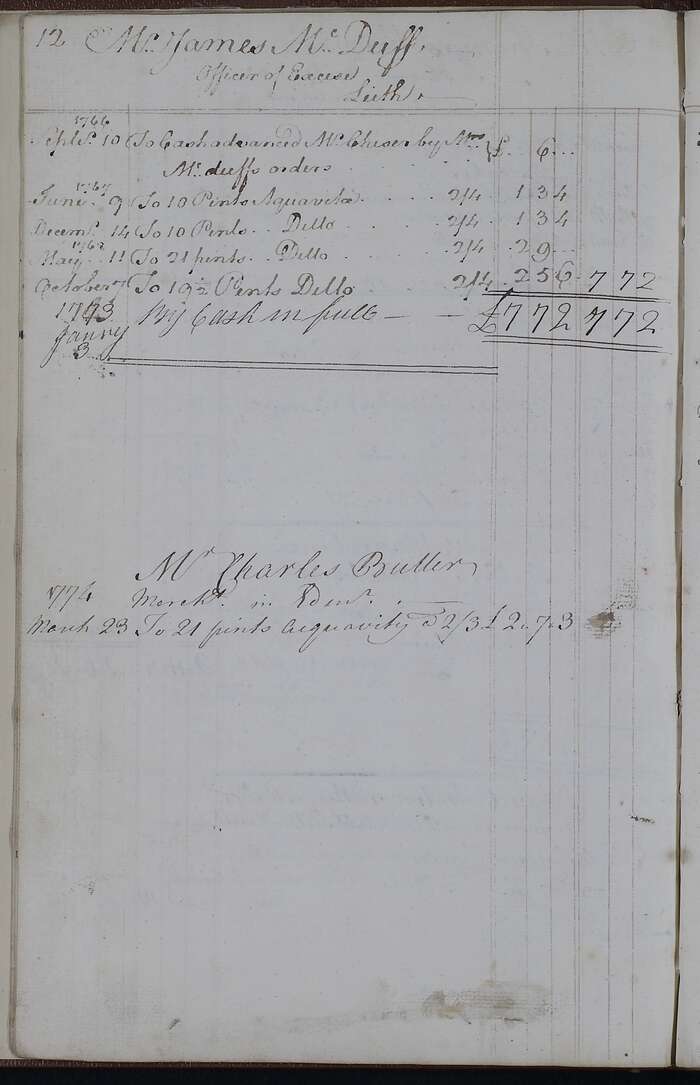 12 Mr. James Mc Duff.
Officer of Excese
Lieth.
1766
Septr. 10 To Cash advanced Mr. Cheser by Mrs £ . 6 . . .
Mc. duffs orders
1767
June. 9 To 10 Pints Aquavitæ . . . . 2/4 . 1 3 4
Decemr. 14 To 10 Pints . . Ditto . . . . 2/4 . 1 3 4
1768
May . . 11 To 21 pints . . Ditto . . . . 2/4 . 2 9 . . .
October 7 To 19 ½ Pints Ditto . . . . 2/4 . 2 5 6 . 7 7 2
1773 By Cash in full — — £ 7 7 2 7 7 2
Janry
3
Mr Charles Butler
1774 Mercht. in Edinr.
March 23 To 21 pints acquavity @ 2/3 £ 2 . 7 . 3